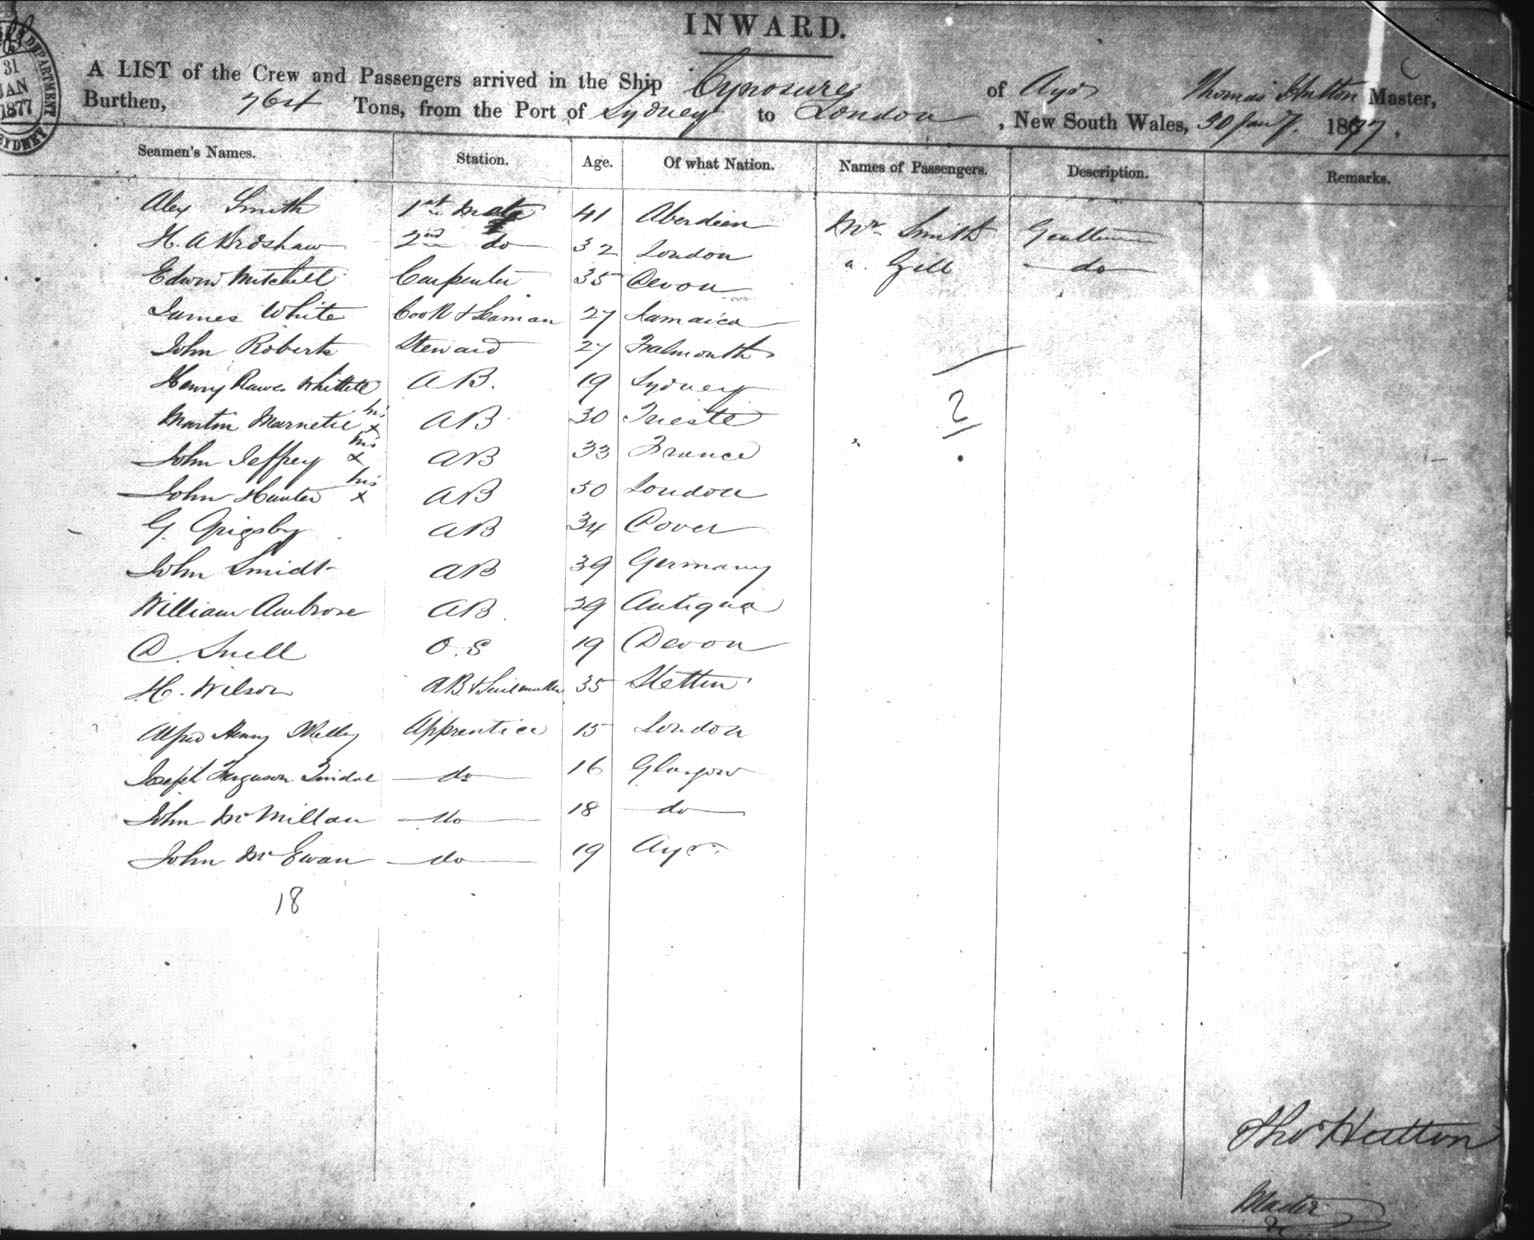 INWARD.
DEPARTMENT
31
JAN
1877
SYDNEY
A LIST of the Crew and Passengers arrived in the Ship Cynosure of Ayr Thomas Hutton Master,
Burthen, Tons, from the Port of Sydney to London, New South Wales, 30 Jany. 1877.
Seamen's Names. Station. Age. Of what Nation. Names of Passengers. Description. Remarks.
Alex Smith 1st Mate 41 Aberdeen Mr Smith Gentleman
H. A Bradshaw 2nd do 32 London " Gill do
Edwin Mitchell Carpenter 35 Devon
James White Cook & Seaman 27 Jamaica
John Roberts Steward 27 Falmouth
Henry Rawes AB. 19 Sydney
Martin Marnetic his x AB 30 Trieste 2
John Jeffrey his x AB 33 France
John Hunter his x AB 30 London
G. Grigsby AB 34 Dover
John Smidt AB 39 Germany
William Ambrose AB. 39 Antigua
D. Snell O.S 19 Devon
H. Wilson AB & Sailmaker 35 Stettin
Alfred Henry Apprentice 15 London
Joseph Ferguson do 16 Glasgow
John McMillan do 18 do
John McEwan do 19 Ayr
18
Thos Hutton
Master